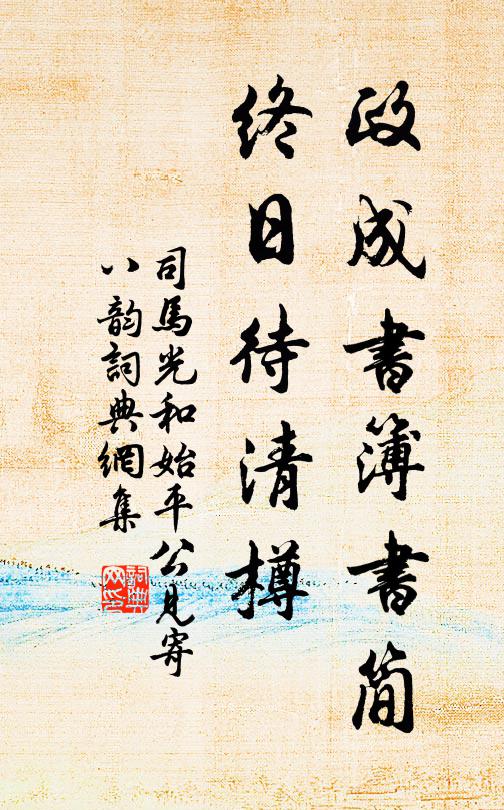 政成書簿書簡
終日待清樽
司馬光和始平公見寄
八韵詞典網集